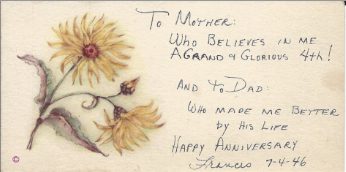 To Mother:
Who Believes in me
A Grand & Glorious 4th!
And To Dad:
Who made me Better
by His Life
Happy Anniversary
Frances 7-4-46
©